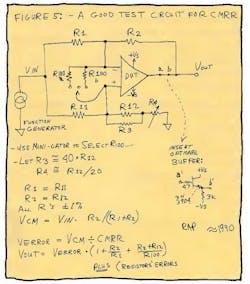 FIGURE 5: - A GOOD TEST CIRCUIT FOR CMRR
R1
R2
VIN
R100
R100
+VS
DUT
a
b
VOUT
-VS
R11
R12
R3
R4
FUNCTION
GENERATOR
INSERT
OPTIONAL
BUFFER:
- USE MINI-GATOR TO SELECT R100 -
- LET R3 ≅ 40 · R12
R4 ≅ R12/20
R1 = R11
R2 = R12
ALL R's ±1%
VCM = VIN · R2/(R1+R2)
VERROR = VCM ÷ CMRR
VOUT = VERROR · (1 + R2/R1 + R2+R12/R100)
PLUS (RESISTORS' ERRORS)
+VS
a
47
b
3904
3k
-VS
RAP ≈1990